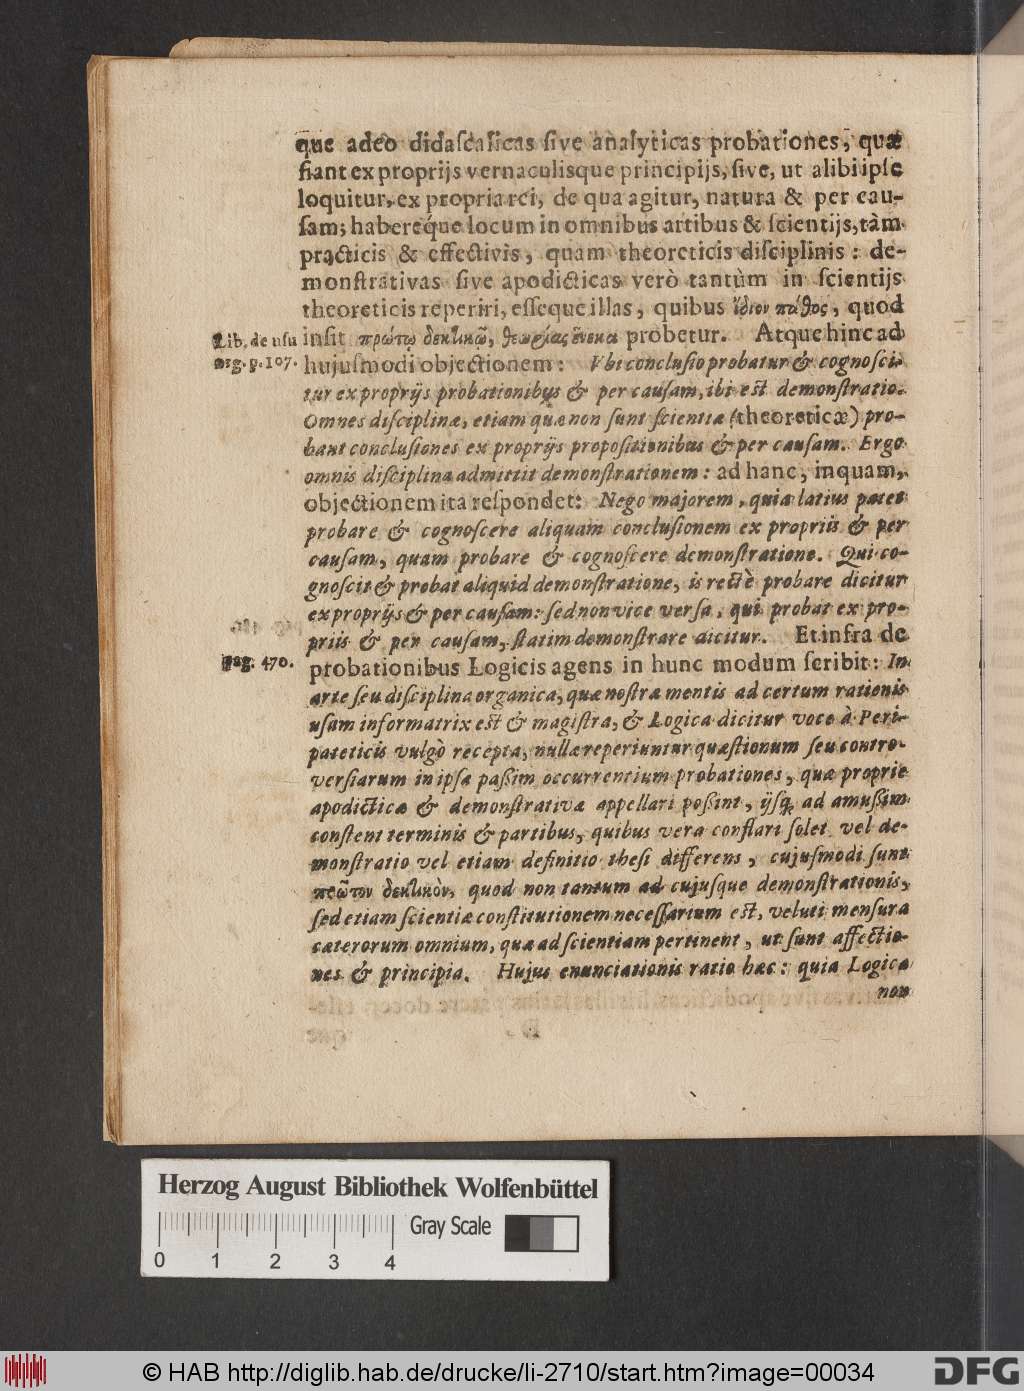 que adeò didaſcalicas ſive analyticas probationes, quæ
fiant ex proprijs vernaculisque principijs, ſive, ut alibi ipſe
loquitur, ex propria rei, de qua agitur, natura & per cau-
ſam; habereq́ue locum in omnibus artibus & ſcientijs, tàm
practicis & effectivis, quam theoreticis diſciplinis: de-
monſtrativas ſive apodicticas verò tantùm in ſcientijs
theoreticis reperiri, eſſeque illas, quibus ἴδιον πάθος, quod
Lib. de usu
arg. p. 107.
inſit πρώτῳ δεκτικῷ, θεωρίας ἕνεκα probetur. Atque hinc ad
hujuſmodi objectionem: Vbi concluſio probatur & cognoſci-
tur ex proprijs probationibus & per cauſam, ibi eſt demonſtratio.
Omnes diſciplinæ, etiam quæ non ſunt ſcientiæ (theoreticæ) pro-
bant concluſiones ex proprijs propoſitionibus & per cauſam. Ergo
omnis diſciplina admittit demonſtrationem: ad hanc, inquam,
objectionem ita reſpondet: Nego majorem, quia latius patet
probare & cognoſcere aliquam concluſionem ex propriis & per
cauſam, quam probare & cognoſcere demonſtratione. Qui co-
gnoſcit & probat aliquid demonſtratione, is rectè probare dicitur
ex proprijs & per cauſam: ſed non vice verſa, qui probat ex pro-
priis & per cauſam, ſtatim demonſtrare dicitur. Et infra de
pag. 470.
probationibus Logicis agens in hunc modum ſcribit: In
arte ſeu diſciplina organica, quæ noſtræ mentis ad certum rationis
uſum informatrix eſt & magiſtra, & Logica dicitur voce à Peri-
pateticis vulgò recepta, nullæ reperiuntur quæſtionum ſeu contro-
verſiarum in ipſa paßim occurrentium probationes, quæ proprie
apodicticæ & demonſtrativæ appellari poßint, ijſq; ad amuſſim
conſtent terminis & partibus, quibus vera conflari ſolet vel de-
monſtratio vel etiam definitio theſi differens, cujuſmodi ſunt
πρῶτον δεκτικὸν, quod non tantum ad cujuſque demonſtrationis,
ſed etiam ſcientiæ conſtitutionem neceſſarium eſt, veluti menſura
cæterorum omnium, quæ ad ſcientiam pertinent, ut ſunt affectio-
nes & principia. Hujus enunciationis ratio hæc: quia Logica
non
Herzog August Bibliothek Wolfenbüttel
Gray Scale
0 1 2 3 4
© HAB http://diglib.hab.de/drucke/li-2710/start.htm?image=00034
DFG